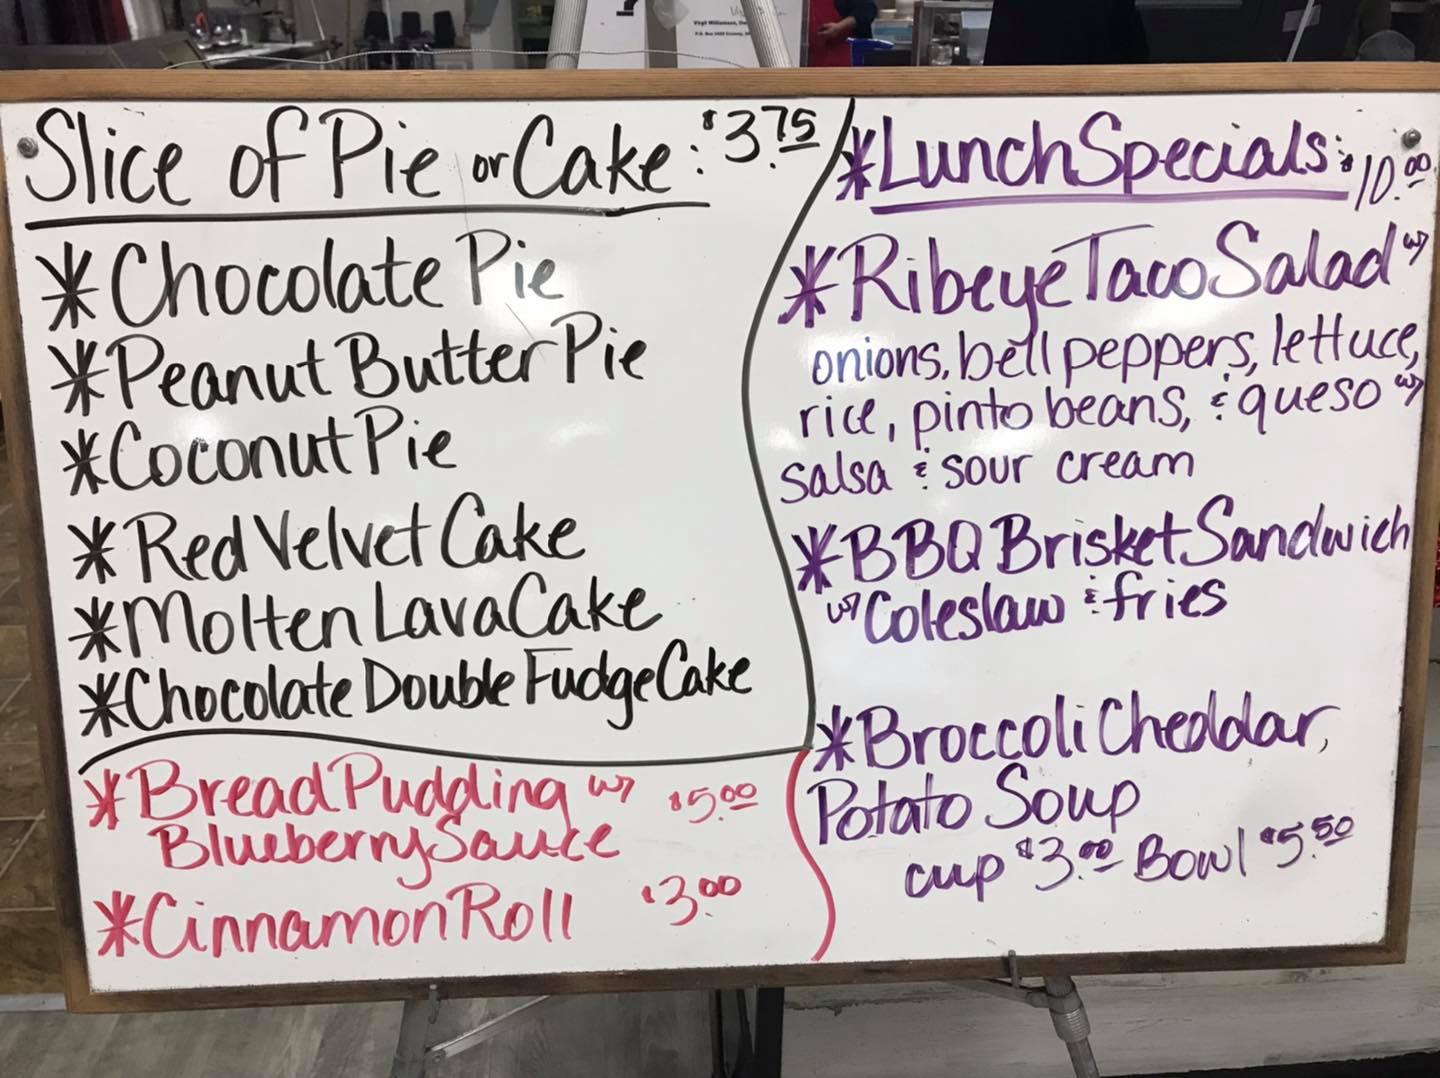 Slice of Pie or Cake: $3.75
*Chocolate Pie
*Peanut Butter Pie
*Coconut Pie
*Red Velvet Cake
*Molten Lava Cake
*Chocolate Double Fudge Cake
*Bread Pudding w/ $5.00
Blueberry Sauce
*Cinnamon Roll $3.00
*Lunch Specials: $10.00
*Ribeye Taco Salad w/
onions, bell peppers, lettuce,
rice, pinto beans, & queso w/
salsa & sour cream
*BBQ Brisket Sandwich
w/ Coleslaw & fries
*Broccoli Cheddar,
Potato Soup
cup $3.00 Bowl $5.50